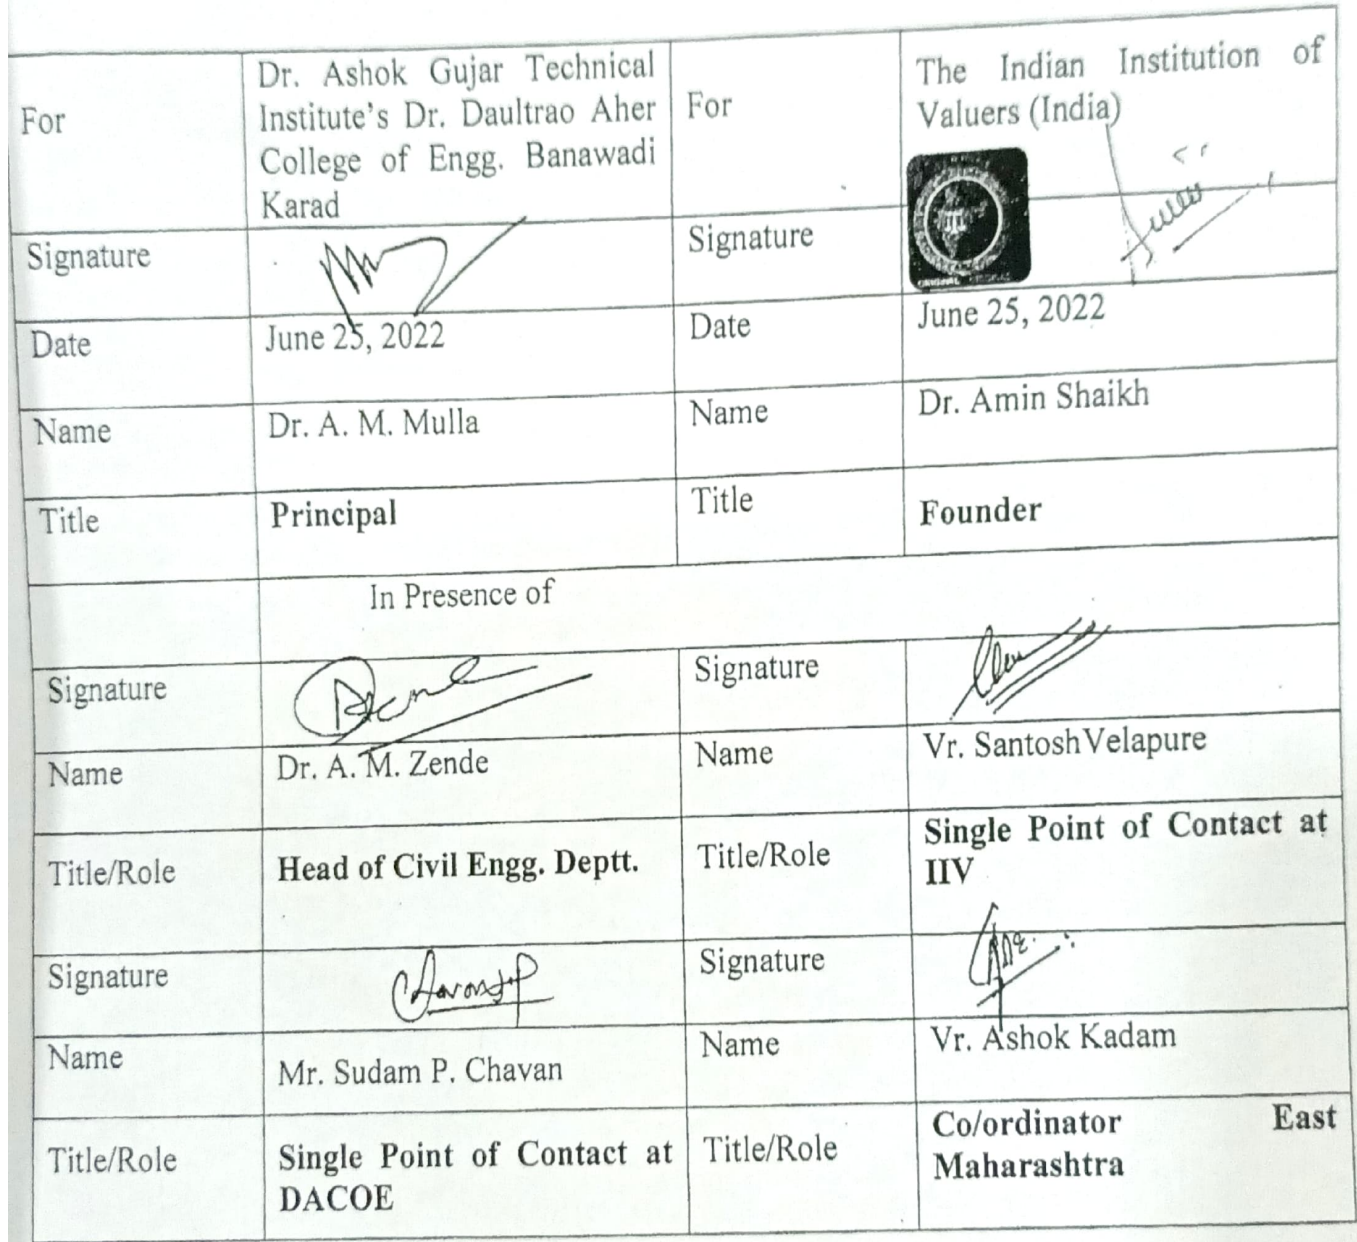 For
Dr. Ashok Gujar Technical
Institute's Dr. Daultrao Aher
College of Engg. Banawadi
Karad
For
The Indian Institution of
Valuers (India)
Signature
Signature
Date
June 25, 2022
Date
June 25, 2022
Name
Dr. A. M. Mulla
Name
Dr. Amin Shaikh
Title
Principal
Title
Founder
In Presence of
Signature
Signature
Name
Dr. A. M. Zende
Name
Vr. SantoshVelapure
Title/Role
Head of Civil Engg. Deptt.
Title/Role
Single Point of Contact at
IIV
Signature
Signature
Name
Mr. Sudam P. Chavan
Name
Vr. Ashok Kadam
Title/Role
Single Point of Contact at
DACOE
Title/Role
Co/ordinator East
Maharashtra